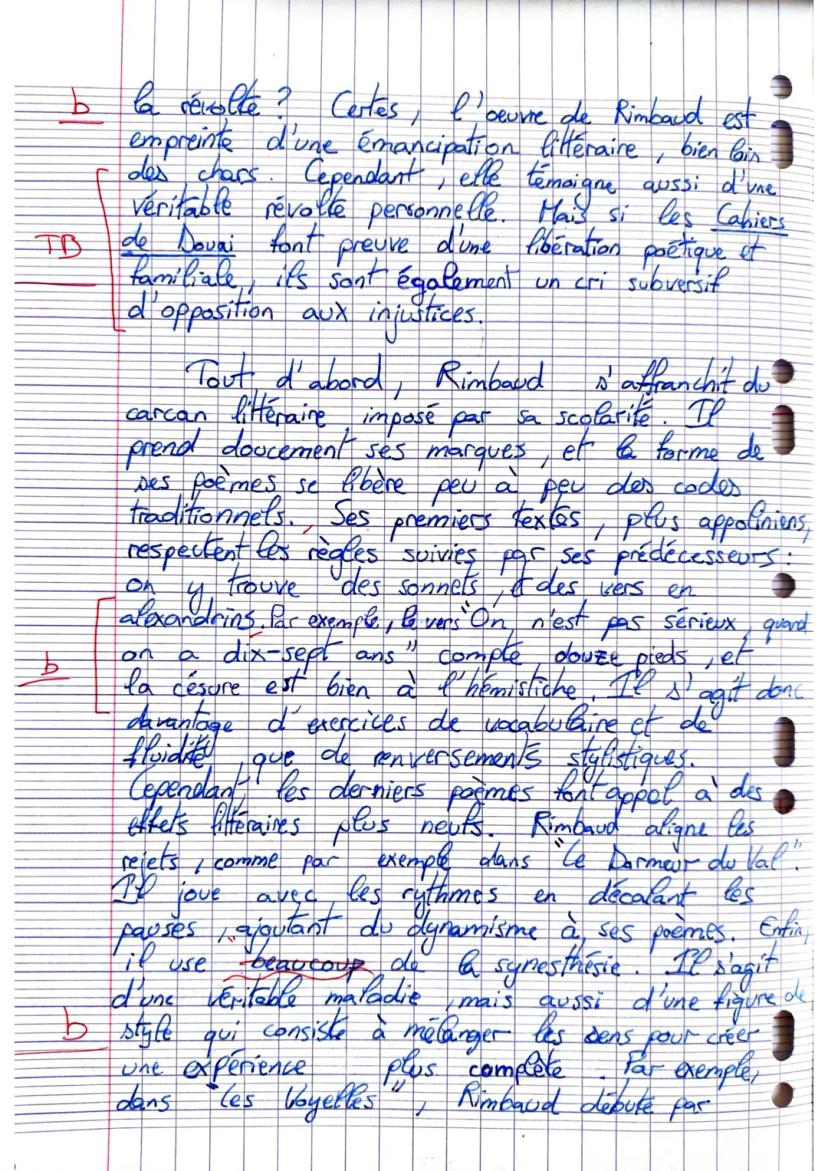 b la révolte ? Certes, l'oeuvre de Rimbaud est
empreinte d'une émancipation littéraire, bien loin
des chars. Cependant, elle témoigne aussi d'une
véritable révolte personnelle. Mais si les Cahiers
TB de Douai font preuve d'une libération poétique et
familiale, ils sont également un cri subversif
d'opposition aux injustices.
Tout d'abord, Rimbaud s'affranchit du
carcan littéraire imposé par sa scolarité. Il
prend doucement ses marques, et la forme de
ses poèmes se libère peu à peu des codes
traditionnels. Ses premiers textes, plus appoliniens,
respectent les règles suivies par ses prédécesseurs :
on y trouve des sonnets, et des vers en
alexandrins. Par exemple, le vers "On n'est pas sérieux, quand
on a dix-sept ans" compte douze pieds, et
b la césure est bien à l'hémistiche. Il s'agit donc
davantage d'exercices de vocabulaire et de
fluidité que de renversements stylistiques.
Cependant les derniers poèmes font appel à des
effets littéraires plus neufs. Rimbaud aligne les
rejets, comme par exemple dans "Le Dormeur du Val".
Il joue avec les rythmes en décalant les
pauses, ajoutant du dynamisme à ses poèmes. Enfin,
il use beaucoup de la synesthésie. Il s'agit
d'une véritable maladie, mais aussi d'une figure de
b style qui consiste à mélanger les sens pour créer
une expérience plus complète. Par exemple,
dans "Les Voyelles", Rimbaud débute par